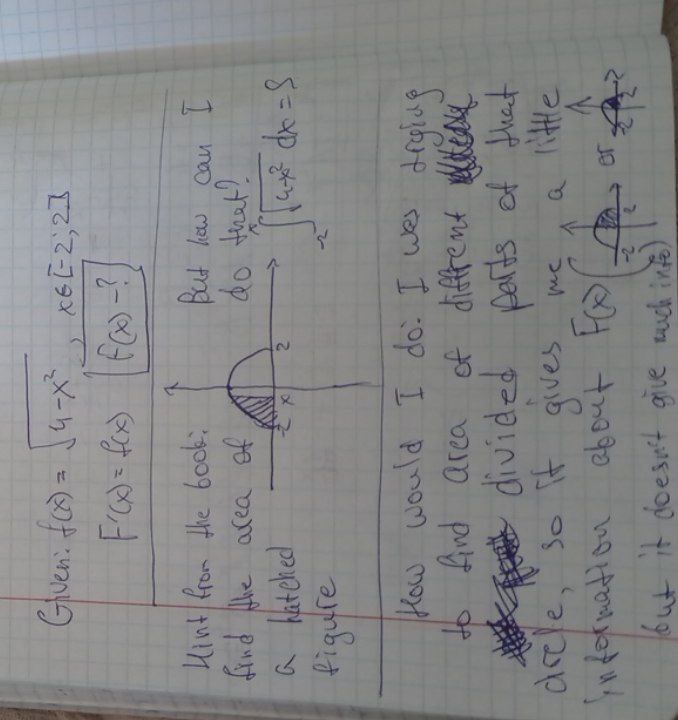 Given: f(x) = √4-x², x∈[-2; 2]
F'(x) = f(x) F(x) - ?
Hint from the book:
find the area of
a hatched
figure
-2 x 2
But how can I
do that?
∫ √4-x² dx = S
-2
How would I do: I was trying
to find area of different
divided parts of that
circle, so it gives me a little
information about F(x) ( -2 2 or -2 2
but it doesn't give much info)